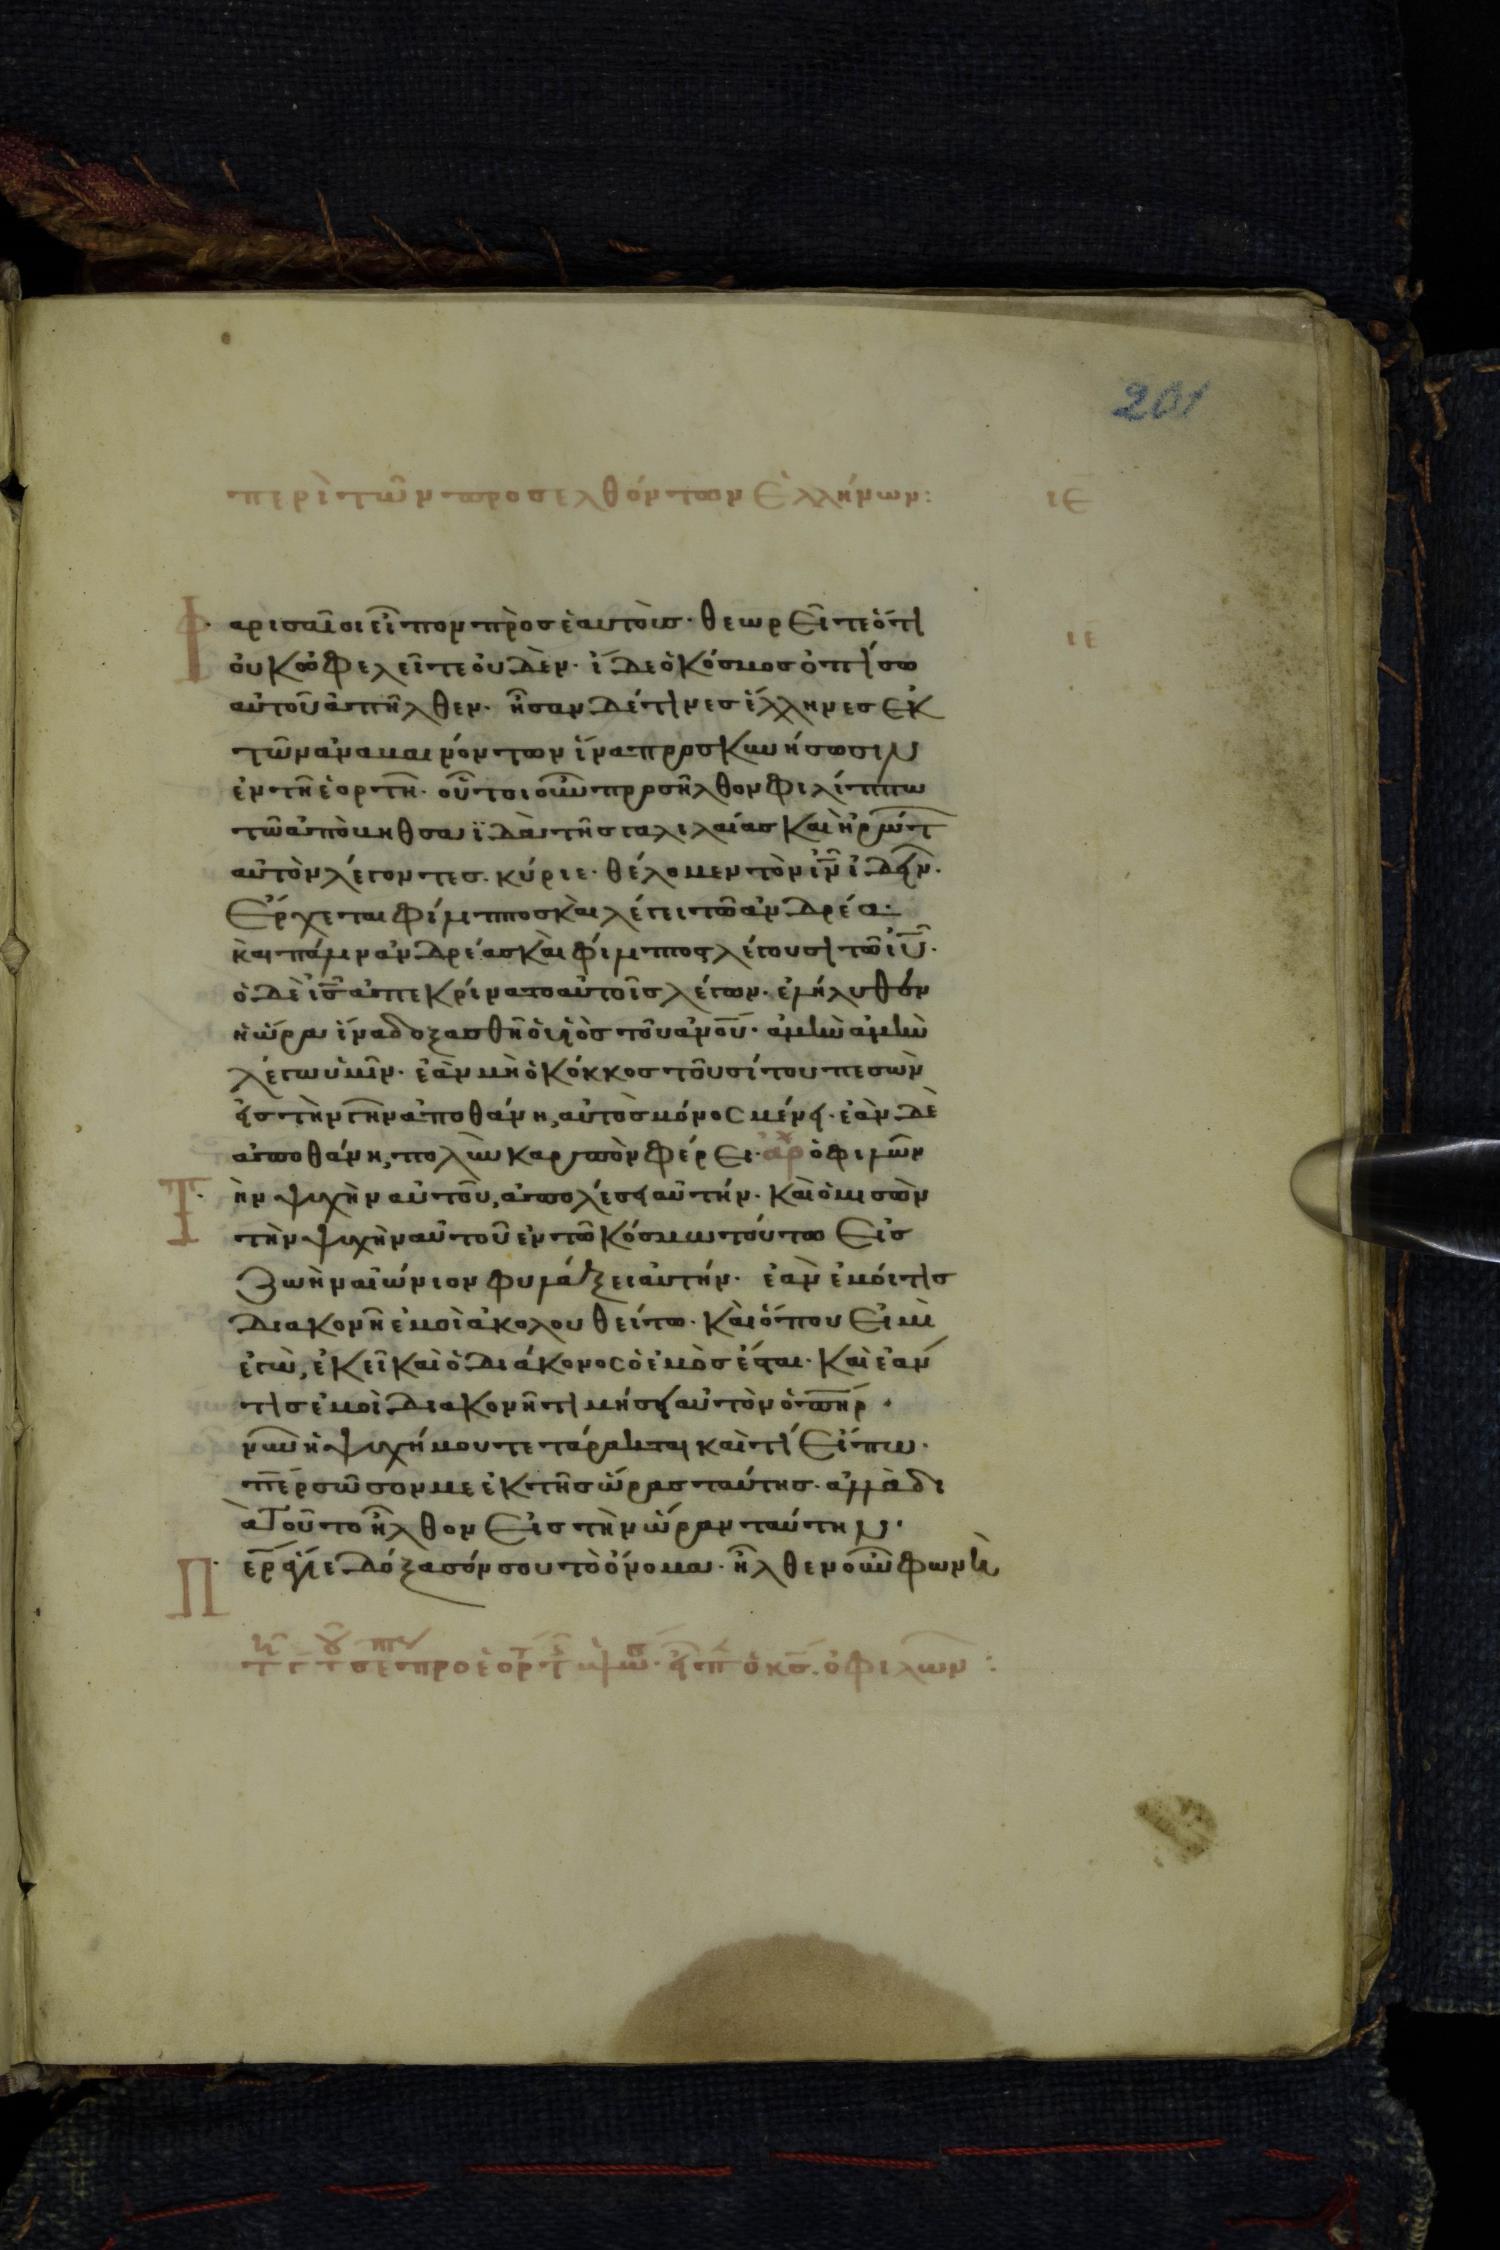 201
περὶ τῶν προσελθόντων Ἑλλήνων: ιε
Φαρισαῖοι εἶπον πρὸς ἑαυτοὺς· θεωρεῖτε ὅτι ιε
οὐκ ὠφελεῖτε οὐδέν· ἴδε ὁ κόσμος ὀπίσω
αὐτοῦ ἀπῆλθεν· ἦσαν δέ τινες ἕλληνες ἐκ
τῶν ἀναβαινόντων ἵνα προσκυνήσωσιν
ἐν τῆ ἑορτῆ· οὗτοι οὖν προσῆλθον φιλίππω
τῶ ἀπὸ βηθσαϊδὰ τῆς γαλιλαίας καὶ ἠρώτ
αὐτὸν λέγοντες· κύριε· θέλομεν τὸν ιν ἰδεῖν·
Ἔρχεται φίλιππος καὶ λέγει τῶ ἀνδρέα·
καὶ πάλιν ἀνδρέας καὶ φίλιππος λέγουσι τῶ ιυ·
ὁ δὲ ις ἀπεκρίνατο αὐτοῖς λέγων· ἐλήλυθεν
ἡ ὥρα ἵνα δοξασθῆ ὁ υἱὸς τοῦ ανου· ἀμὴν ἀμὴν
λέγω ὑμῖν· ἐὰν μὴ ὁ κόκκος τοῦ σίτου πεσὼν
εἰς τὴν γῆν ἀποθάνη, αὐτὸς μόνος μένει· ἐὰν δὲ
ἀποθάνη, πολὺν καρπὸν φέρει· ἀρχ ὁ φιλῶν
Τὴν ψυχὴν αὐτοῦ, ἀπολέσει αὐτήν· καὶ ὁ μισῶν
τὴν ψυχὴν αὐτοῦ ἐν τῶ κόσμω τούτω εἰς
ζωὴν αἰώνιον φυλάξει αὐτήν· ἐὰν ἐμοί τις
διακονῆ ἐμοὶ ἀκολουθείτω· καὶ ὅπου εἰμὶ
ἐγὼ, ἐκεῖ καὶ ὁ διάκονος ὁ ἐμὸς ἔσται· καὶ ἐάν
τις ἐμοὶ διακονῆ τιμήσει αὐτὸν ὁ πηρ·
νῦν ἡ ψυχή μου τετάρακται καὶ τί εἴπω·
περ σῶσον με ἐκ τῆς ὥρας ταύτης· ἀλλὰ δι
ὰ τοῦτο ἦλθον εἰς τὴν ὥραν ταύτην·
Περ δόξασόν σου τὸ ὄνομα· ἦλθεν οὖν φωνὴ
ὁ φιλων: